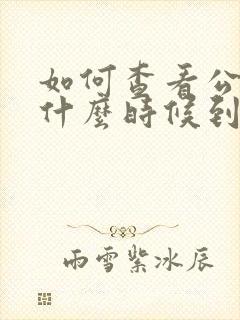 如何查看公
什麼時候到
雨雪紫冰辰